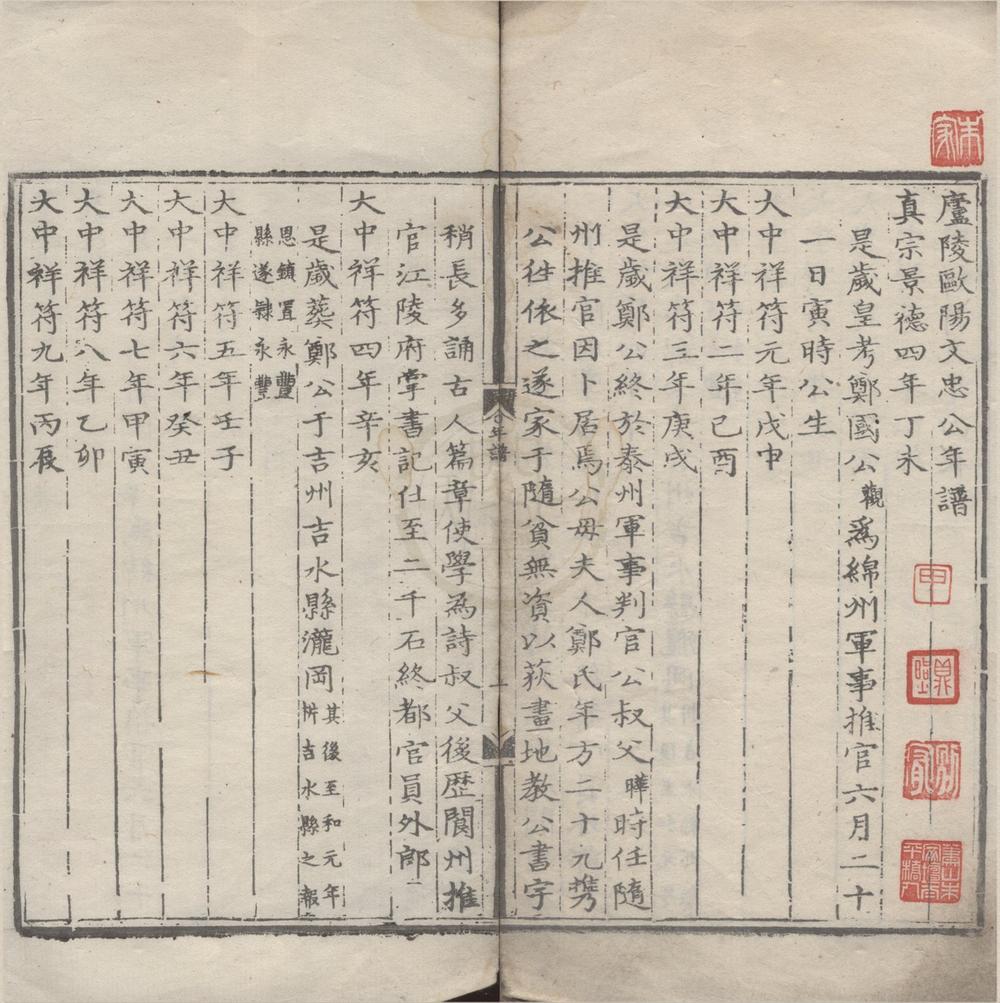 廬陵歐陽文忠公年譜
真宗景德四年丁未
是歲皇考鄭國公觀爲綿州軍事推官六月二十
一日寅時公生
大中祥符元年戊申
大中祥符二年己酉
大中祥符三年庚戌
是歲鄭公終於泰州軍事判官公叔父曄時任隨
州推官因卜居焉公母夫人鄭氏年方二十九携
公往依之遂家于隨貧無資以荻畫地教公書字
合年譜
一
稍長多誦古人篇章使學為詩叔父後歷閬州推
官江陵府掌書記仕至二千石終都官員外郎
大中祥符四年辛亥
是歲葬鄭公于吉州吉水縣瀧岡其後至和元年
析吉水縣之報
恩鎮置永豐
縣遂隸永豐
大中祥符五年壬子
大中祥符六年癸丑
大中祥符七年甲寅
大中祥符八年乙卯
大中祥符九年丙辰
朱家